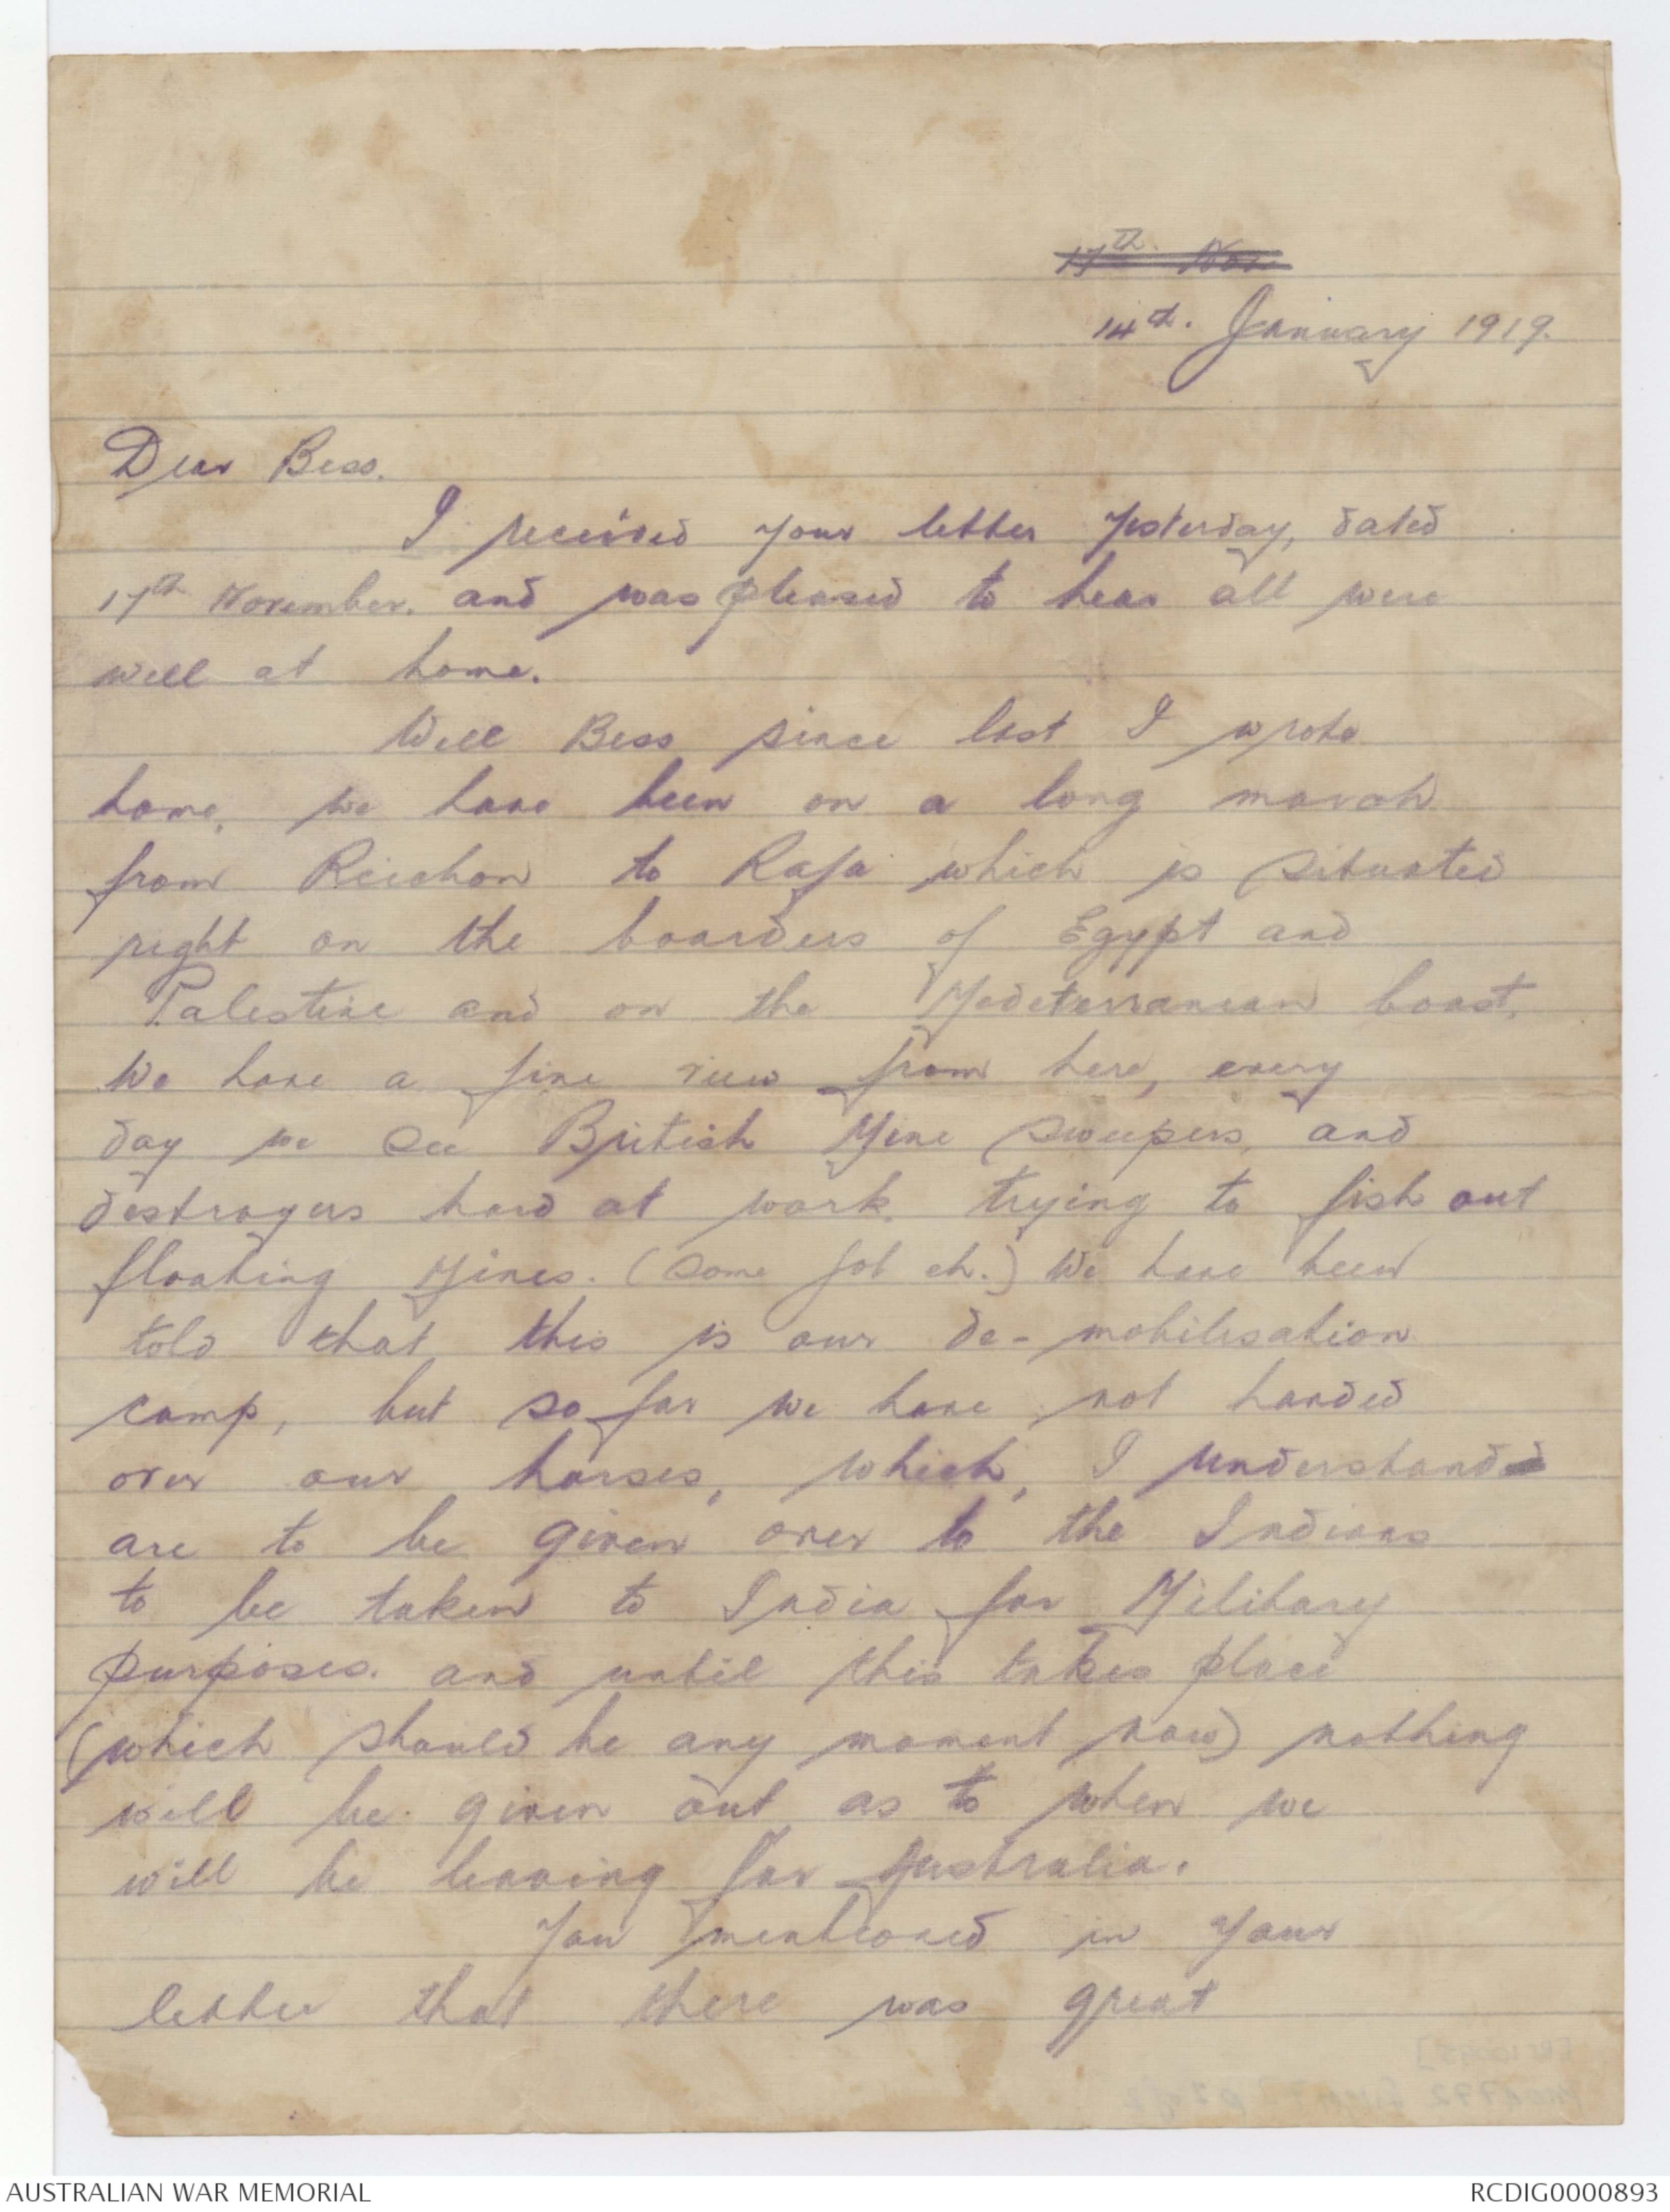 17th. Nov.
14th. January 1919.
Dear Bess.
I received your letter yesterday, dated
17th November. and was pleased to hear all were
well at home.
Well Bess since last I wrote
home, we have been on a long march
from Reichon to Rafa which is situated
right on the boarders of Egypt and
Palestine and on the Medeterranean boast.
We have a fine view from here, every
day we see British Mine sweepers, and
destroyers hard at work. trying to fish out
floating Mines. (some job eh.) We have been
told that this is our de-mobilisation
camp, but so far we have not handed
over our horses, which, I understand
are to be given over to the Indians
to be taken to India for Military
purposes. and until this takes place
(which should be any moment now) nothing
will be given out as to when we
will be leaving for Australia.
You mentioned in your
letter that there was great
AUSTRALIAN WAR MEMORIAL
RCDIG0000893